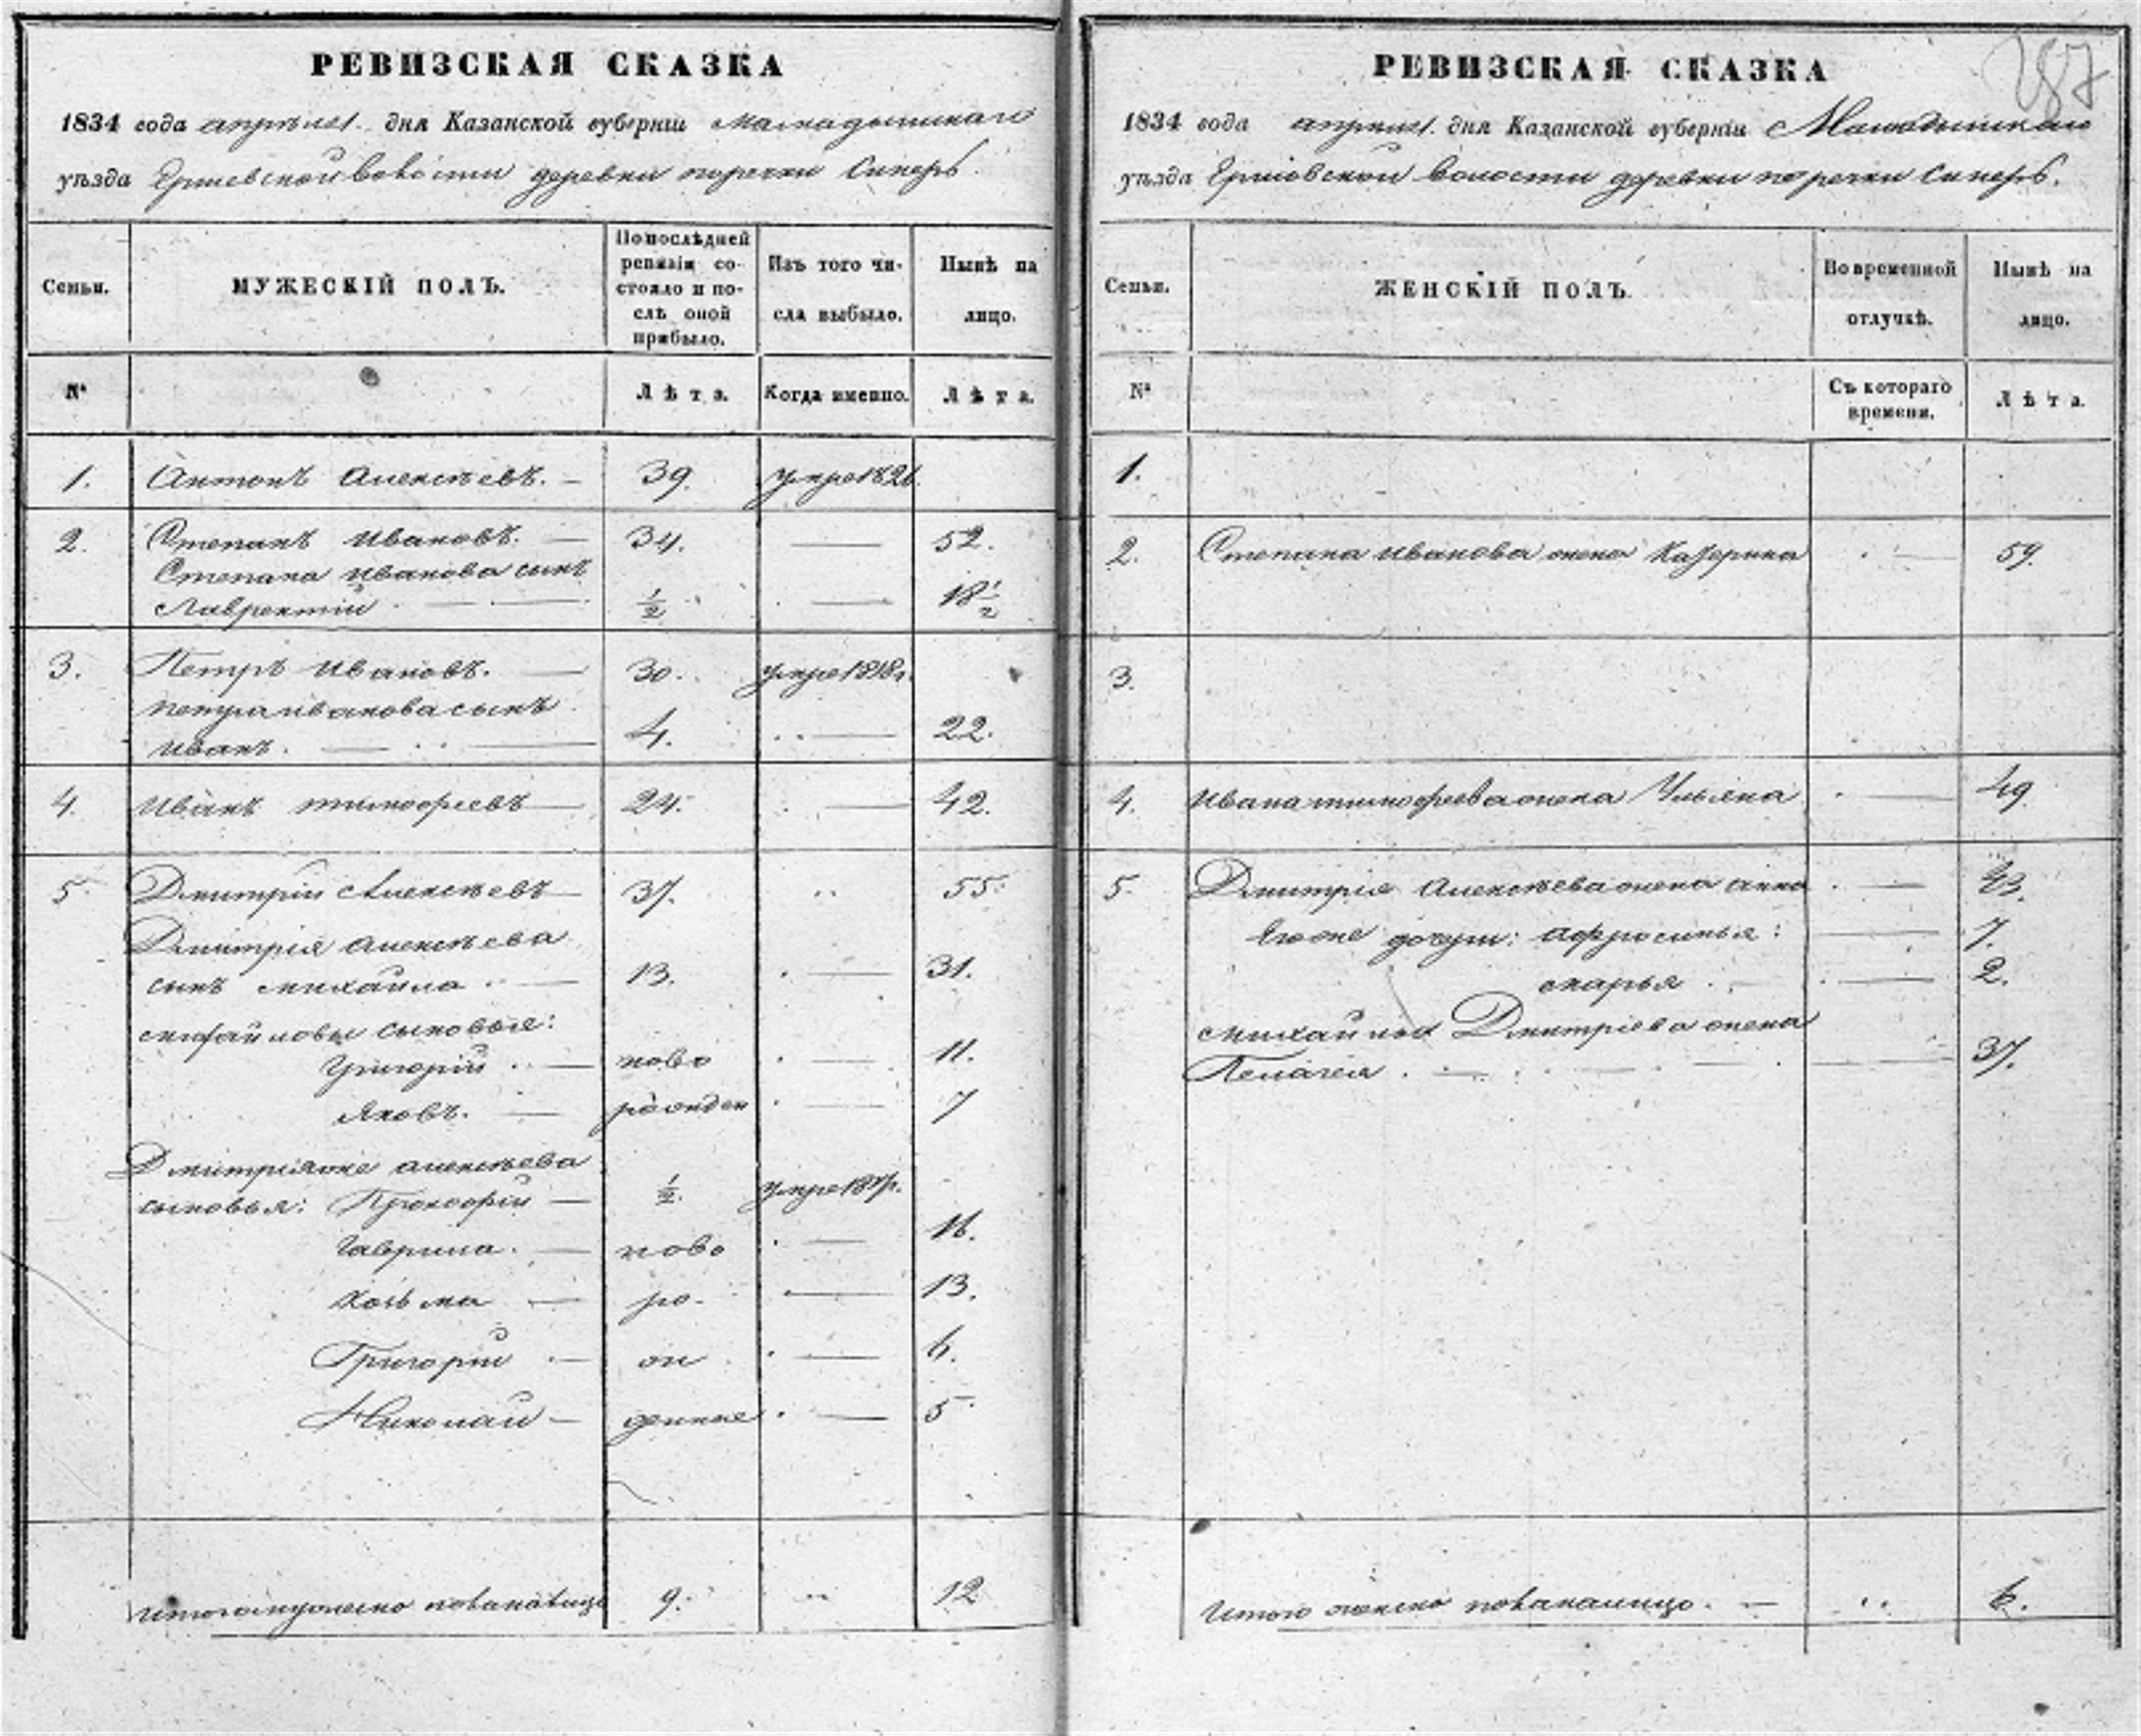 РЕВИЗСКАЯ СКАЗКА
1834 года апреля дня Казанской губернiи Мамадышскаго
уѣзда волости деревни поречки Синеръ.
Сеньи.
МУЖЕСКIЙ ПОЛЪ.
По послѣдней
ревизiи со-
стояло и по-
слѣ оной
прибыло.
Изъ того чи-
сла выбыло.
Нынѣ на
лицо.
№
Лѣта.
Когда именно.
Лѣта.
1. Антонъ Алексѣевъ. — 39. умре 1826.
2. Степанъ Ивановъ. — 34. — 52.
Степана Иванова сынъ
Лаврентiй — 1/2 — 18 1/2
3. Петръ Ивановъ. — 30. умре 1818.
Петра Иванова сынъ
Иванъ. — 4. — 22.
4. Иванъ Тимофеевъ — 24. — 42.
5. Дмитрiй Алексѣевъ — 37. 55.
Дмитрiя Алексѣева
сынъ Михайла — 13. — 31.
Михайловы сыновья:
Григорiй — ново — 11.
Яковъ. — рожден — 7
Дмитрiя же Алексѣева
сыновья: Прокофiй — 1/2. умре
Гаврила. — ново — 16.
Козьма — ро- — 13.
Григорiй — ж — 6.
Николай — денные — 5
Итого мужеска пола налицо 9. 12
РЕВИЗСКАЯ СКАЗКА
287
1834 года апреля дня Казанской губернiи Мамадышскаго
уѣзда волости деревни поречки Синеръ.
Сеньи.
ЖЕНСКIЙ ПОЛЪ.
Во временной
отлучкѣ.
Нынѣ на
лицо.
№
Съ котораго
времени.
Лѣта.
1.
2. Степана Иванова жена Катерина — 59.
3.
4. Ивана Тимофеева жена Ульяна — 49
5. Дмитрiя Алексѣева жена Анна — 43.
Его же дочери: Афросинья: — 7.
Марья — 2.
Михайлы Дмитрiева жена
Пелагея — 37.
Итого женска пола налицо. — 6.